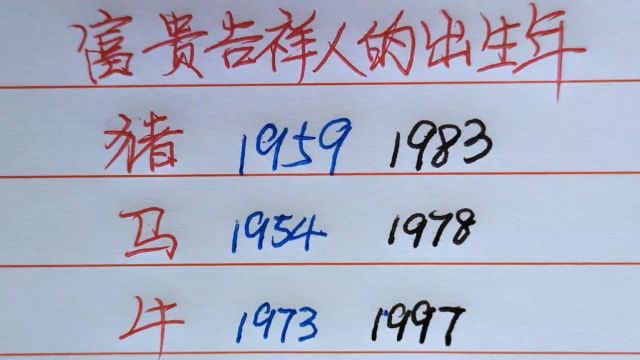 富贵吉祥人的出生年
猪 1959 1983
马 1954 1978
牛 1973 1997